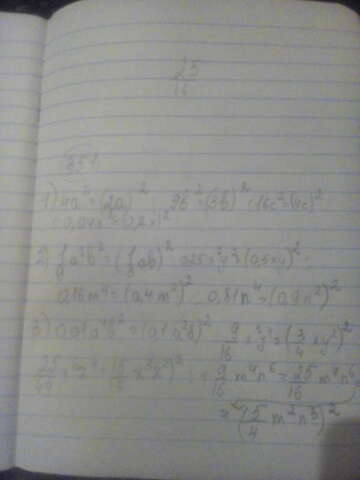 25
16
351
1) 4a² = (2a)² 9b² = (3b)² 16c² = (4c)²
0,04x² = (0,2x)²
2) 1/9 a²b² = (1/3 ab)² 0,25x²y² = (0,5xy)²
0,16m⁴ = (0,4m²)² 0,81n⁴ = (0,9n²)²
3) 0,01a⁴b² = (0,1a²b)² 9/16 x²y⁴ = (3/4 xy²)²
25/49 x⁶z⁴ = (5/7 x³z²)² 1 9/16 m⁴n⁶ = 25/16 m⁴n⁶
= (5/4 m²n³)²